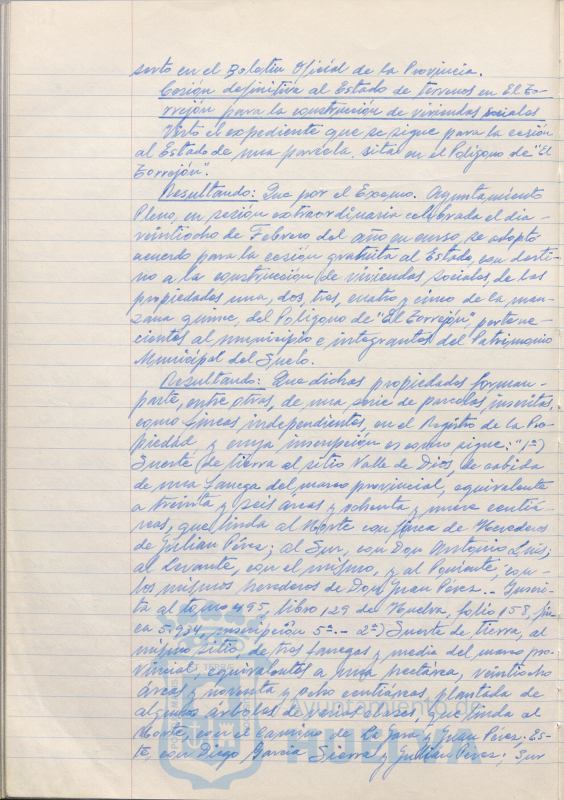 serto en el Boletin Oficial de la Provincia.
Cesión definitiva al Estado de terrenos en El To-
rrejón para la construcción de viviendas sociales
Visto el expediente que se sigue para la cesión
al Estado de una parcela, sita en el Polígono de "El
Torrejón".
Resultando: Que por el Excmo. Ayuntamiento
Pleno, en sesión extraordinaria celebrada el día -
veintiocho de Febrero del año en curso, se adoptó
acuerdo para la cesión gratuita al Estado, con desti-
no a la construcción de viviendas sociales, de las
propiedades una, dos, tres, cuatro y cinco de la man-
zana quince, del Polígono de "El Torrejón", pertene-
cientes al municipio e integrantes del Patrimonio
Municipal del Suelo.
Resultando: Que dichas propiedades forman -
parte, entre otras, de una serie de parcelas inscritas,
como fincas independientes, en el Registro de la Pro-
piedad y cuya inscripción es como sigue: "1ª)
Suerte de tierra al sitio Valle de Dios, de cabida
de una fanega del marco provincial, equivalente
a treinta y seis áreas y ochenta y nueve centiá-
reas, que linda al Norte con finca de Herederos
de Julian Pérez; al Sur, con Don Antonio Luis;
al Levante, con el mismo, y al Poniente, con -
los mismos herederos de Don Juan Pérez.- Inscri-
ta al tomo 495, libro 129 de Huelva, folio 158, fin-
ca 5.934, inscripción 5ª.- 2ª) Suerte de tierra, al
mismo sitio, de tres fanegas y media del marco pro-
vincial equivalentes a una hectárea, veintiocho
áreas y noventa y ocho centiáreas, plantada de
algunos árboles de varias clases, que linda al
Norte, con el camino de La Jara y Juan Pérez; Es-
te, con Diego García Sierra y Julian Pérez; Sur
Ayuntamiento de